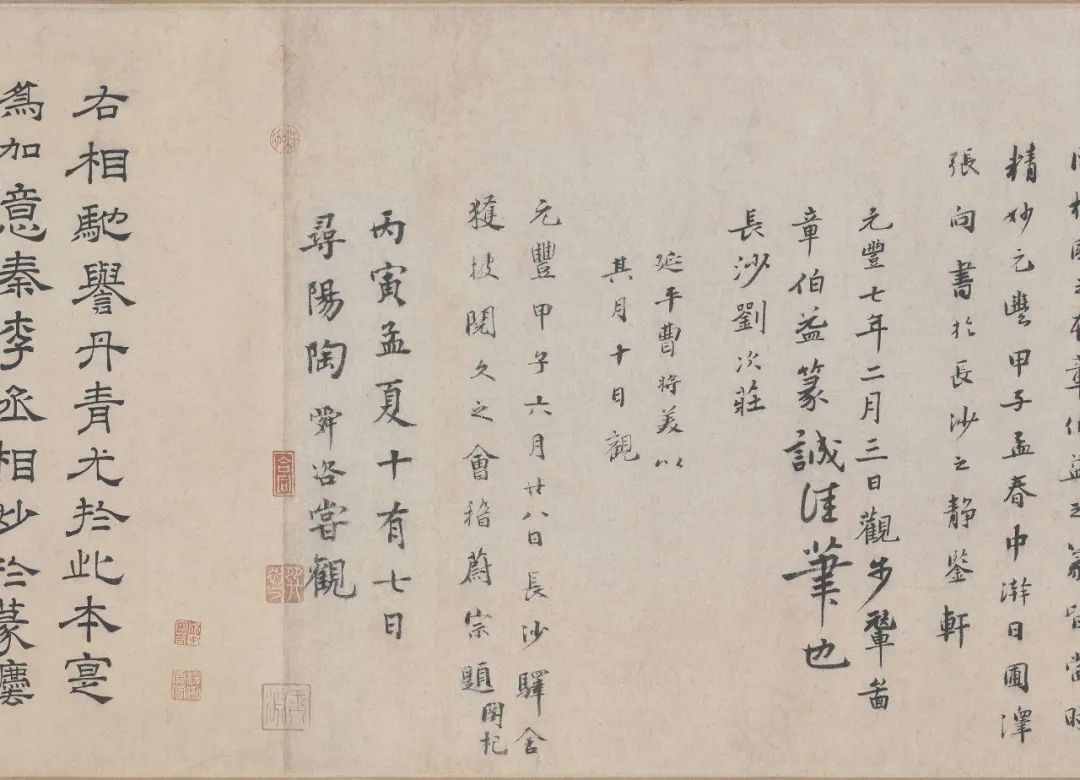 精妙元豐甲子孟春中澣日圃澤
張向書於長沙之靜鑒軒
元豐七年二月三日觀步輦啚
章伯益篆誠佳筆也
長沙劉次莊
延平曹將美以
其月十日觀
元豐甲子六月廿八日長沙驛舍
獲披閱久之會稽蔚宗題
閏杞
丙寅孟夏十有七日
尋陽陶舜咨嘗觀
右相馳譽丹青尤於此本寔
為加意秦李丞相妙於篆